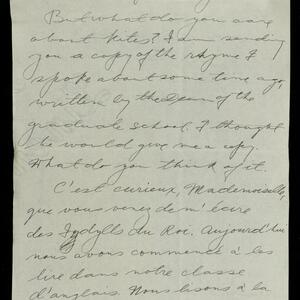 But what do you care
about Kites? I am sending
you a copy of the rhyme I
spoke about some time ago,
written by the Dean of the
graduate school. I thought
he would give me a copy.
What do you think of it.
C'est curieux, Mademoiselle,
que vous venez de m'écrire
des Idylls du Roi. Aujourd'hui
nous avons commencé à les
lire dans notre classe
d'anglais. Nous lisons à la